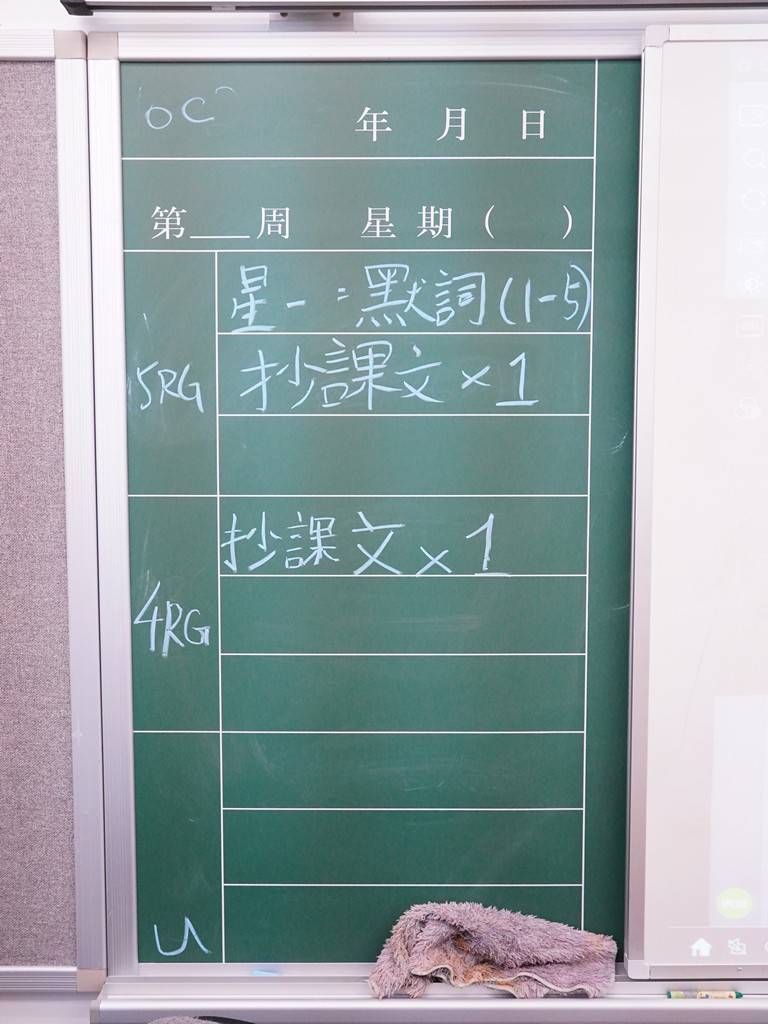 OC
年 月 日
第___周 星期( )
星一:默詞(1-5)
5RG 抄課文×1
抄課文×1
4RG